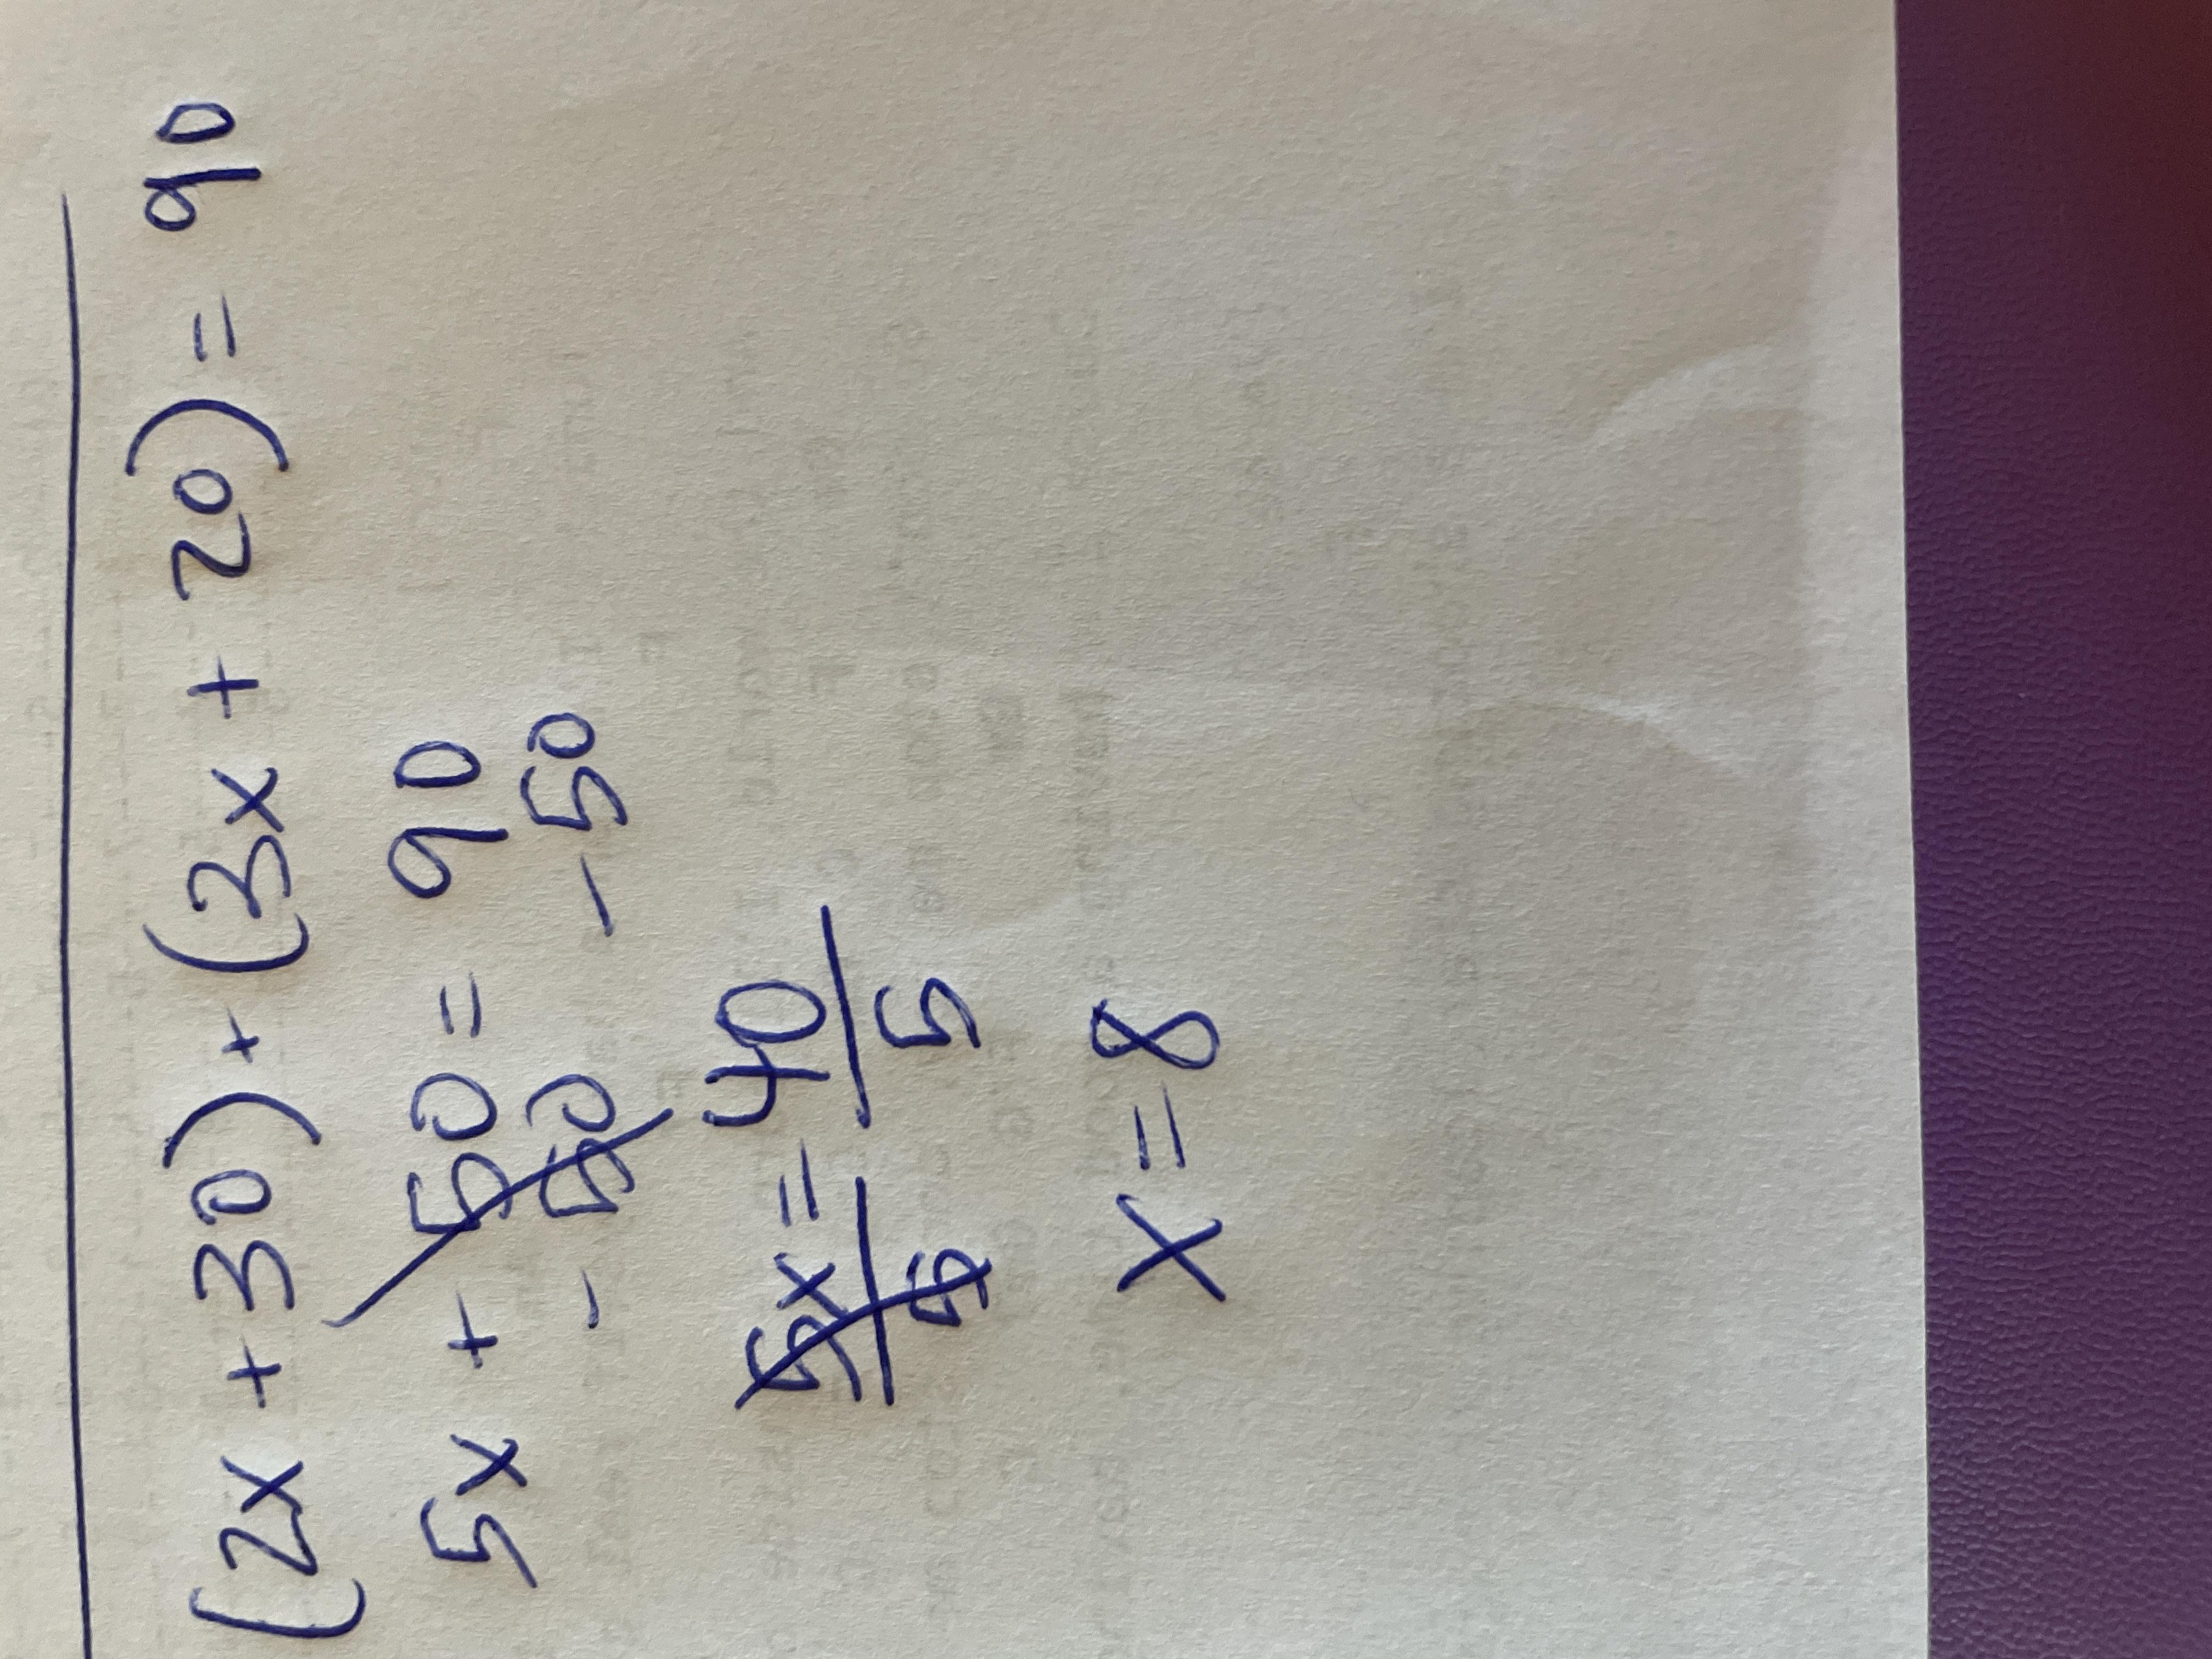 (2x + 30) + (3x + 20) = 90
5x + 50 = 90
- 50 - 50
5x = 40
5 5
x = 8